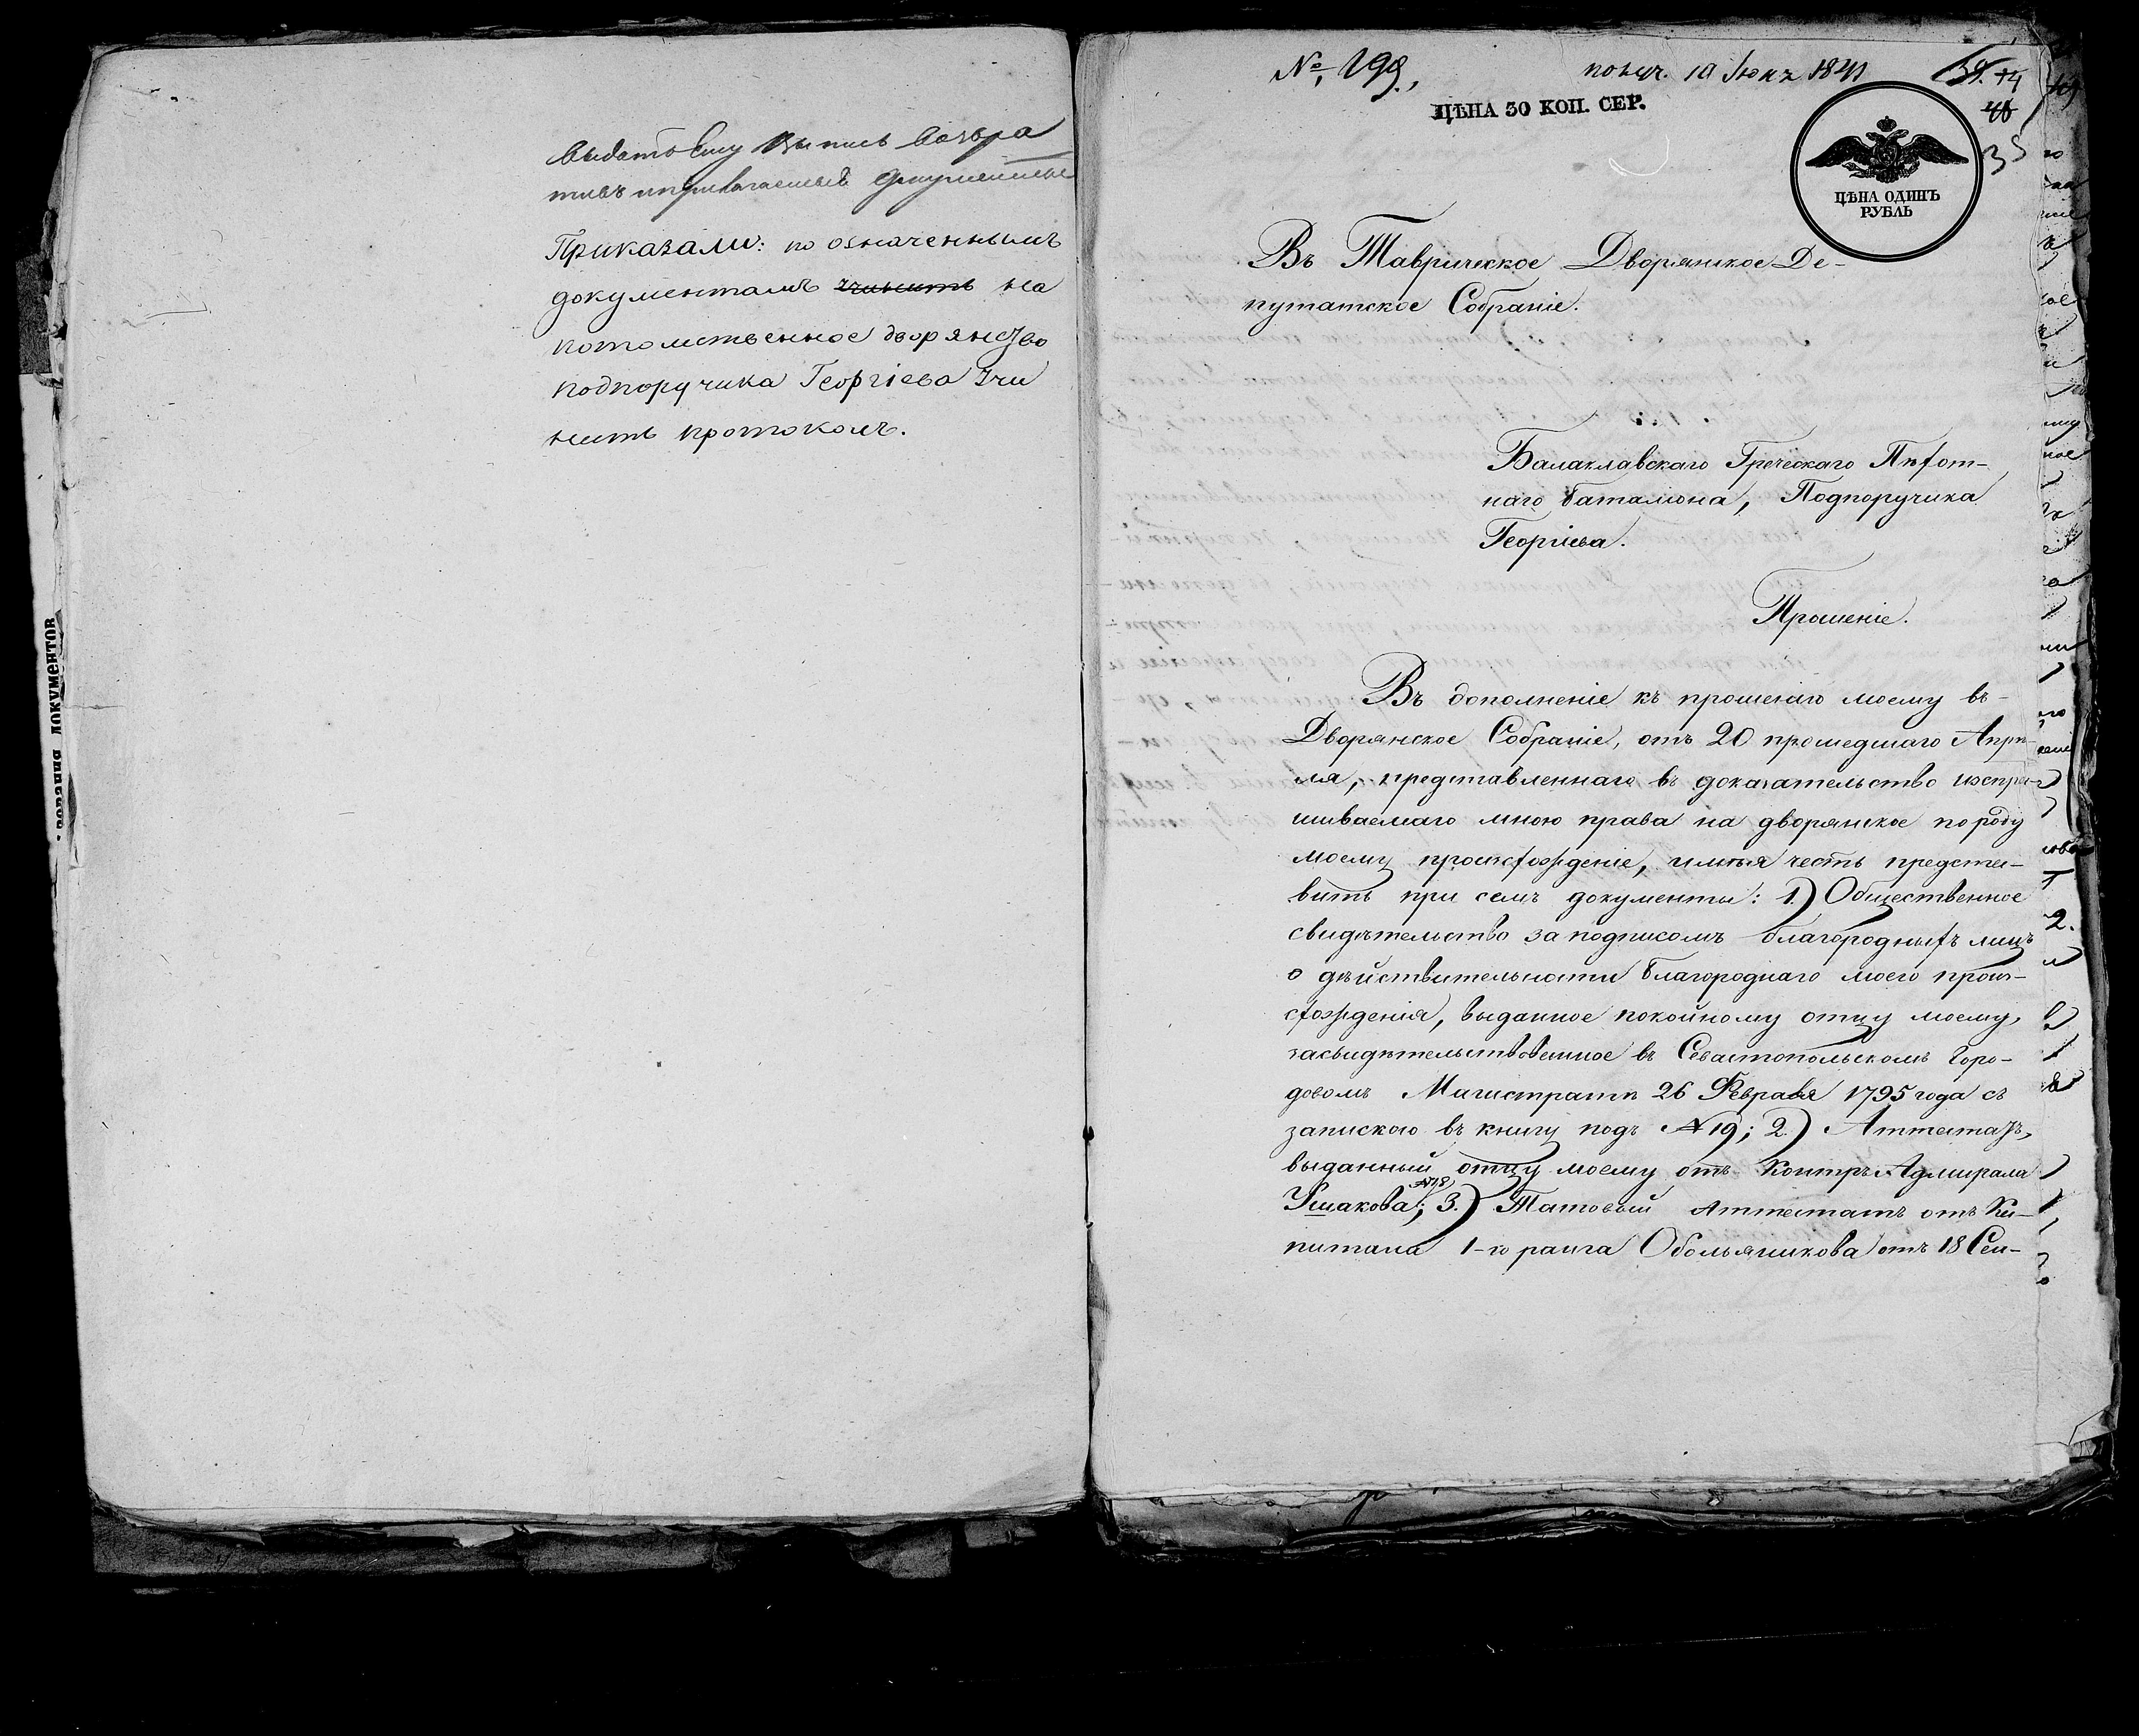 выдать Ему выпись возвра
тивъ и прилагаемый документы
Приказали: по означеннымъ
документамъ учинить на
потомственное дворянство
подпоручика Георгіева учи
нить протоколъ.
№ 199.
получ. 10 Июня 1841
39. 44
48
35
ЦѢНА 30 КОП. СЕР.
ЦѢНА ОДИНЪ
РУБЛЬ
Въ Таврическое Дворянское Де-
путатское Собраніе.
Балаклавскаго Греческаго Пѣхот-
наго баталіона, Подпоручика
Георгіева.
Прошеніе.
Въ дополненіе къ прошенію моему въ
Дворянское Собраніе, отъ 20 прошедшаго Апрѣ-
ля, представленнаго въ доказательство испра-
шиваемаго мною права на дворянское по роду
моему происхожденіе, имѣя честь предста-
вить при семъ документы: 1.) Общественное
свидѣтельство за подписомъ благородныхъ лицъ
о дѣйствительности благороднаго моего прои-
схожденія, выданное покойному отцу моему,
засвидѣтельствованное въ Севастопольскомъ Горо-
довомъ Магистратѣ 26 Февраля 1795 года съ
запискою въ книгу подъ № 19; 2.) Аттестатъ,
выданный отцу моему отъ Контръ Адмирала
Ушакова; 3.) Таковый Аттестатъ отъ Ка-
питана 1-го ранга Обольянинова отъ 18 Сен-
зования документов